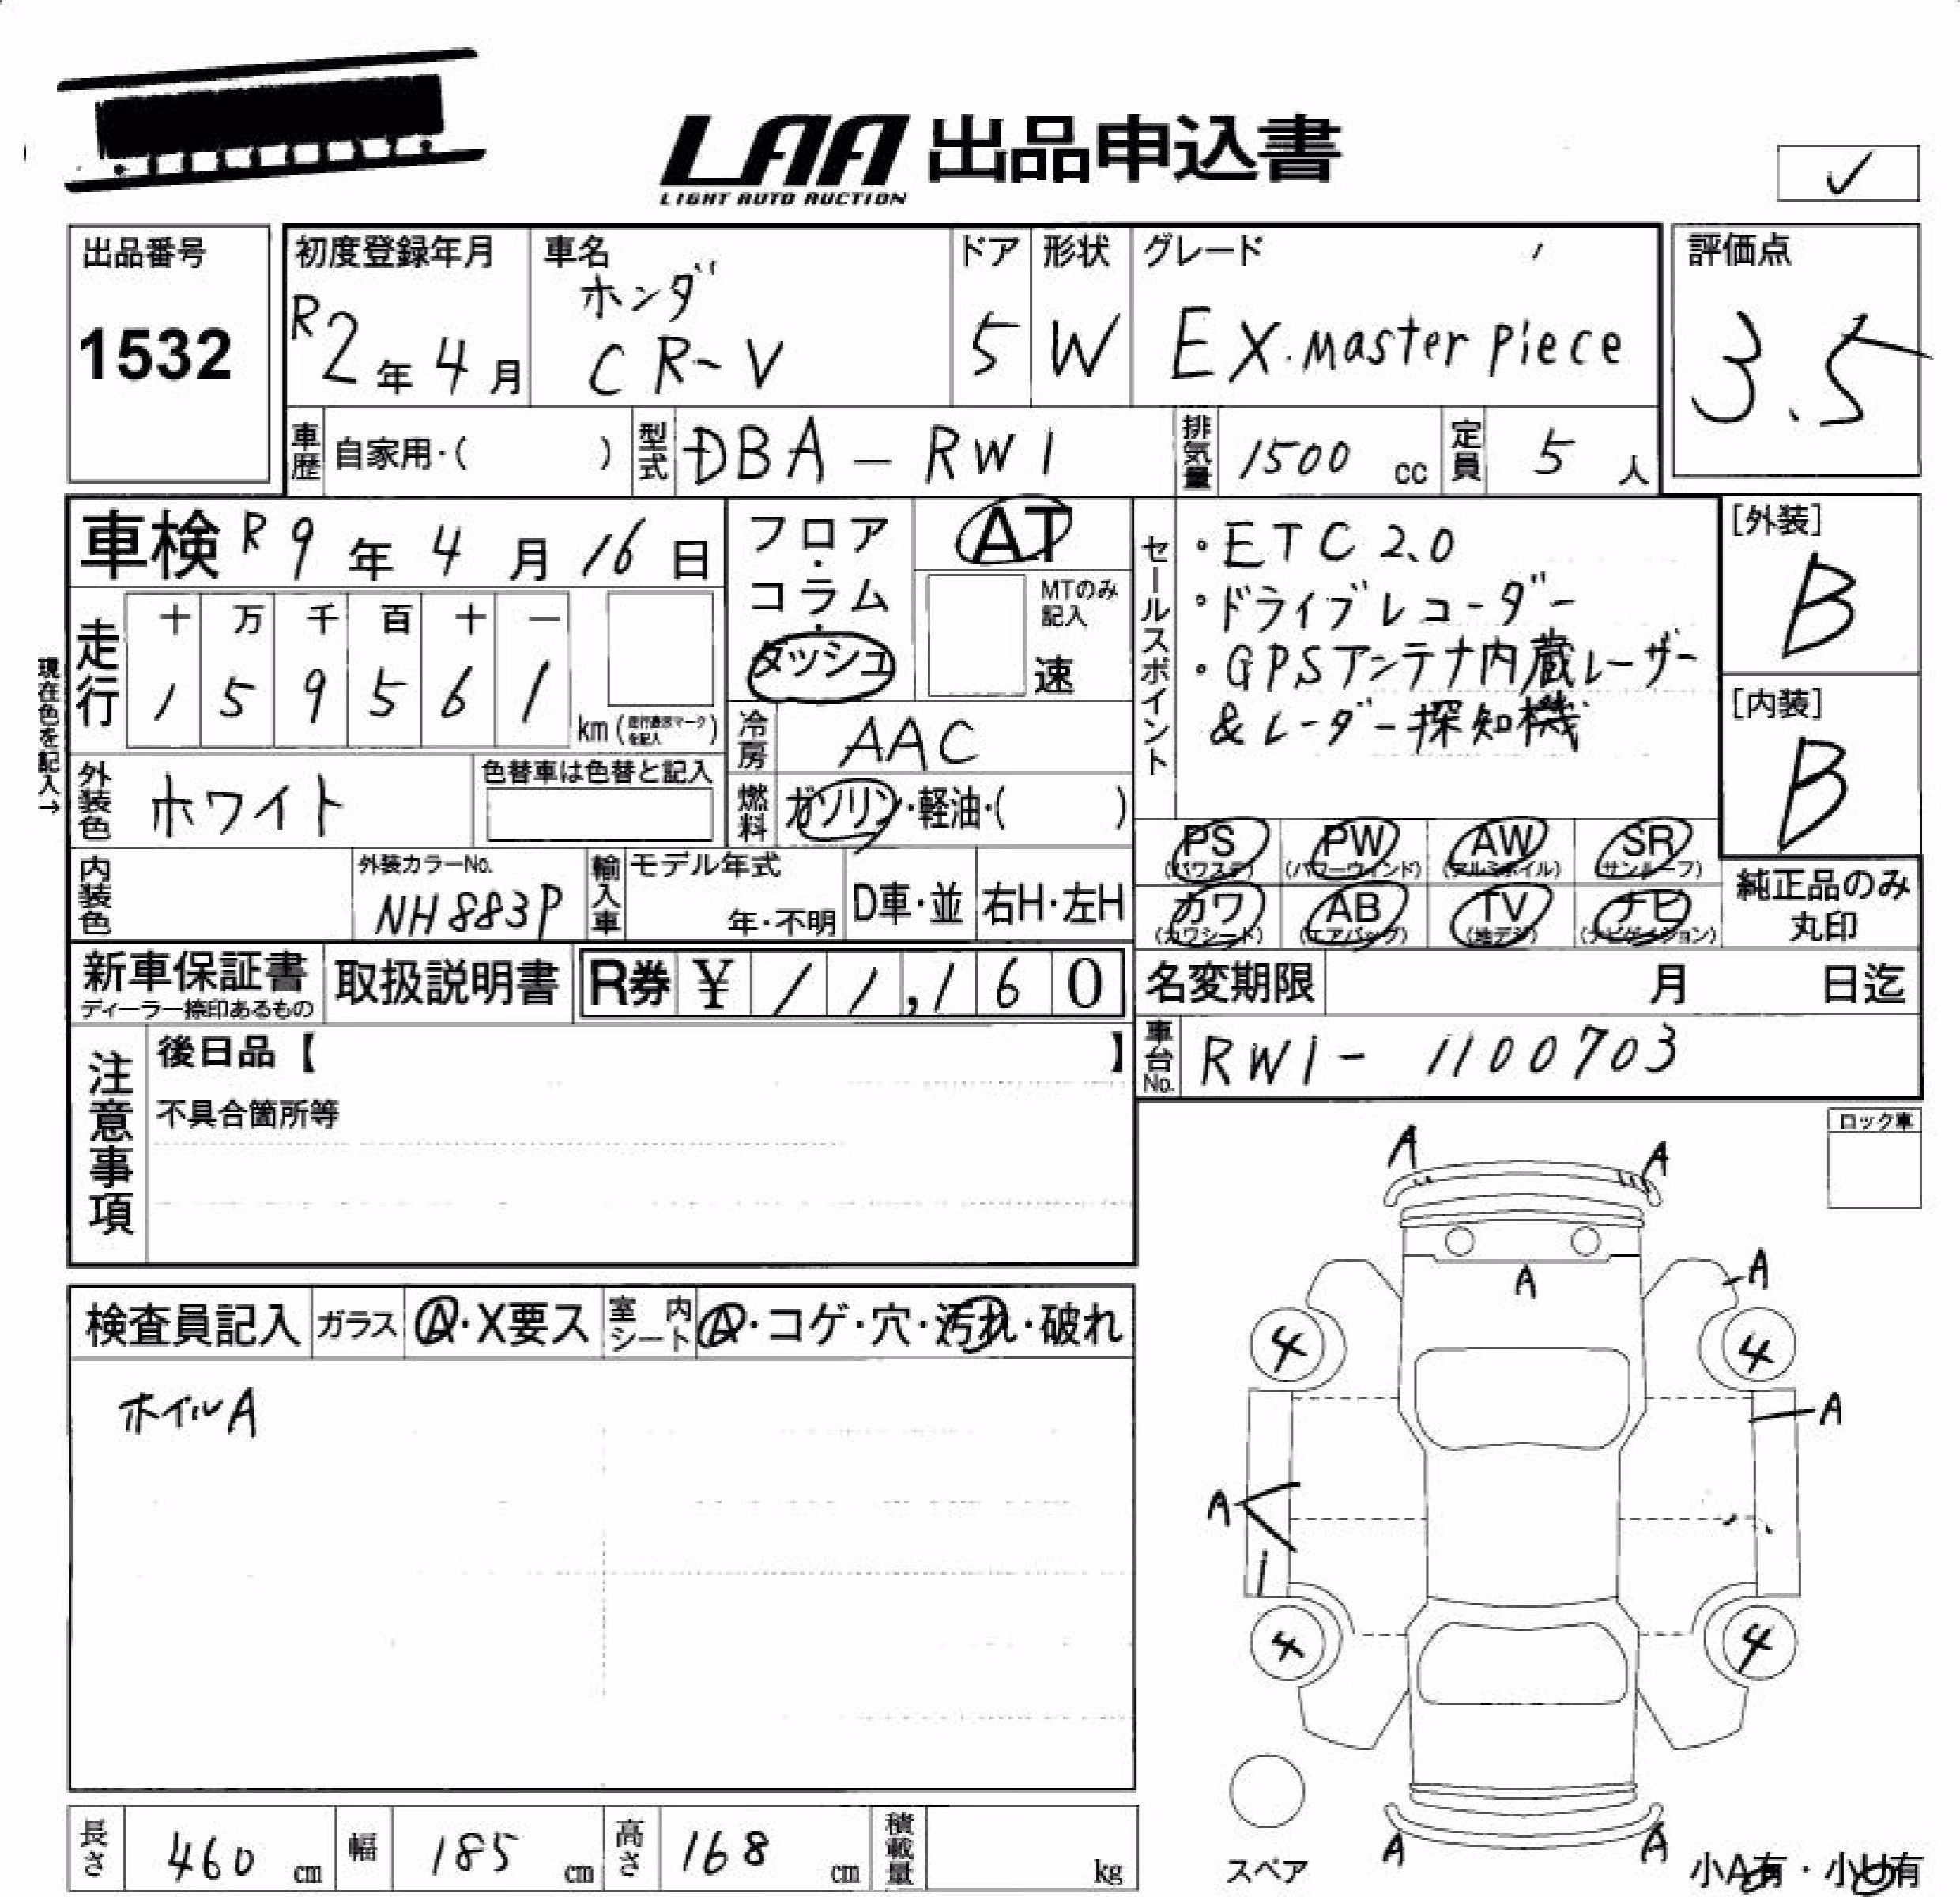 LAA 出品申込書
LIGHT AUTO AUCTION
✓
出品番号
1532
初度登録年月
R2年4月
車名
ホンダ
CR-V
ドア
5
形状
W
グレード
EX.Master Piece
評価点
3.5
車歴 自家用・( )
型式 DBA-RW1
排気量 1500 cc
定員 5 人
車検 R9年4月16日
フロア・コラム・ダッシュ
AT
MTのみ記入
速
セールスポイント
・ETC2.0
・ドライブレコーダー
・GPSアンテナ内蔵レーザー
&レーダー探知機
[外装]
B
[内装]
B
現在色を記入→
走行
十 万 千 百 十 一
1 5 9 5 6 1
km (走行表示マークを記入)
冷房 AAC
外装色 ホワイト
色替車は色替と記入
燃料 ガソリン・軽油・( )
PS (パワステ)
PW (パワーウィンド)
AW (アルミホイル)
SR (サンルーフ)
カワ (カワシート)
AB (エアバッグ)
TV (地デジ)
ナビ (ナビゲイション)
純正品のみ
丸印
内装色
外装カラーNo.
NH883P
輸入車
モデル年式
年・不明
D車・並
右H・左H
新車保証書
ディーラー捺印あるもの
取扱説明書
R券 ¥ 11,160
名変期限 月 日迄
車台No. RW1-1100703
注意事項
後日品【 】
不具合箇所等
ロック車
検査員記入
ガラス A・X要ス
室内シート A・コゲ・穴・汚れ・破れ
ホイルA
A A
A
A
4 4
A
A
4 4
A A
スペア
小A有・小U有
長さ 460 cm
幅 185 cm
高さ 168 cm
積載量 kg